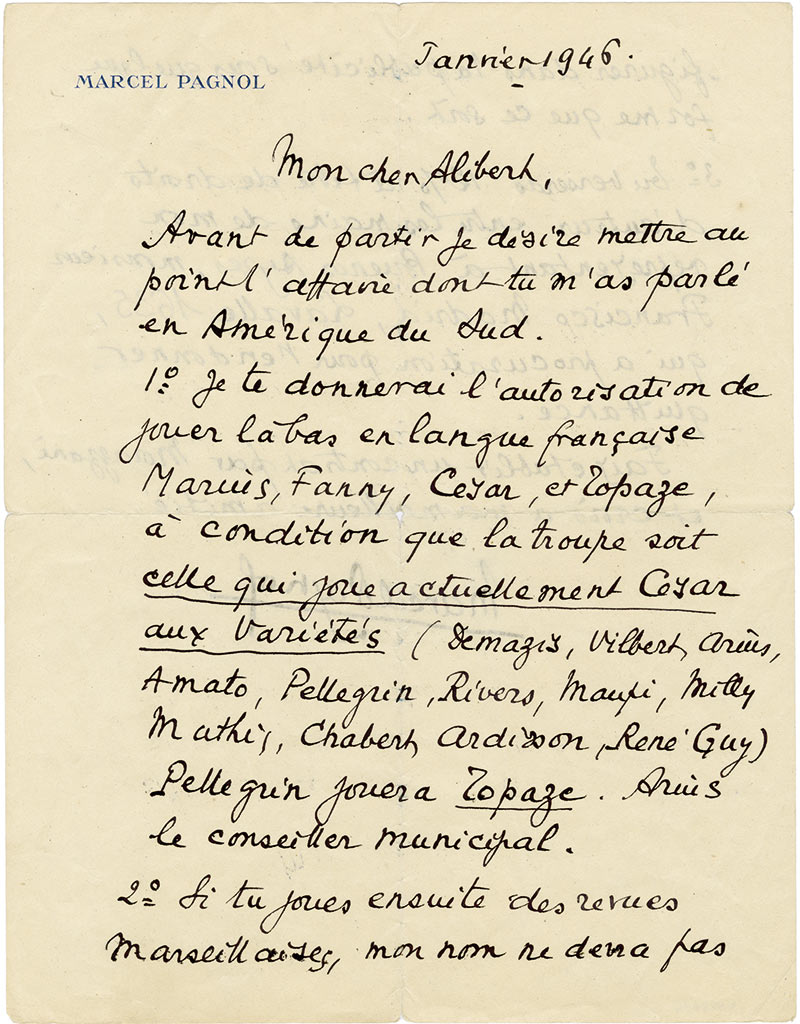 Janvier 1946.
MARCEL PAGNOL
Mon cher Alibert,
Avant de partir je désire mettre au
point l'affaire dont tu m'as parlé
en Amérique du Sud.
1º Je te donnerai l'autorisation de
jouer làbas en langue française
Marius, Fanny, César, et Topaze,
à condition que la troupe soit
celle qui joue actuellement César
aux Variétés (Demazis, Vilbert, Arius,
Amato, Pellegrin, Rivers, Maupi, Milly
Mathis, Chabert, Ardisson, René Guy)
Pellegrin jouera Topaze. Arius
le conseiller municipal.
2º Si tu joues ensuite des revues
Marseillaises, mon nom ne devra pas